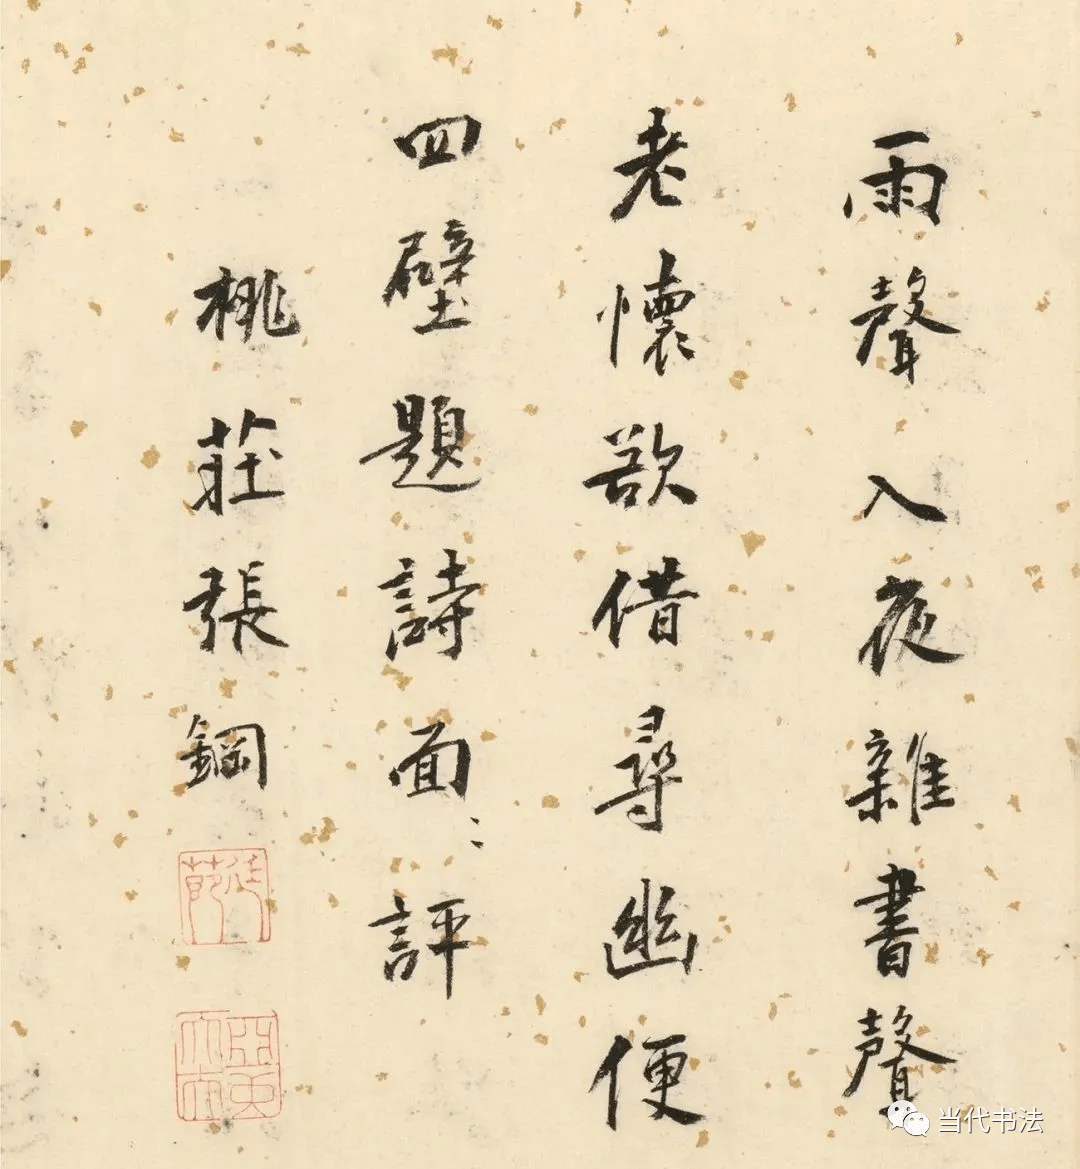 雨聲入夜雜書聲
老懷欲借尋幽便
四壁題詩面〻評
桃莊張錮
当代书法